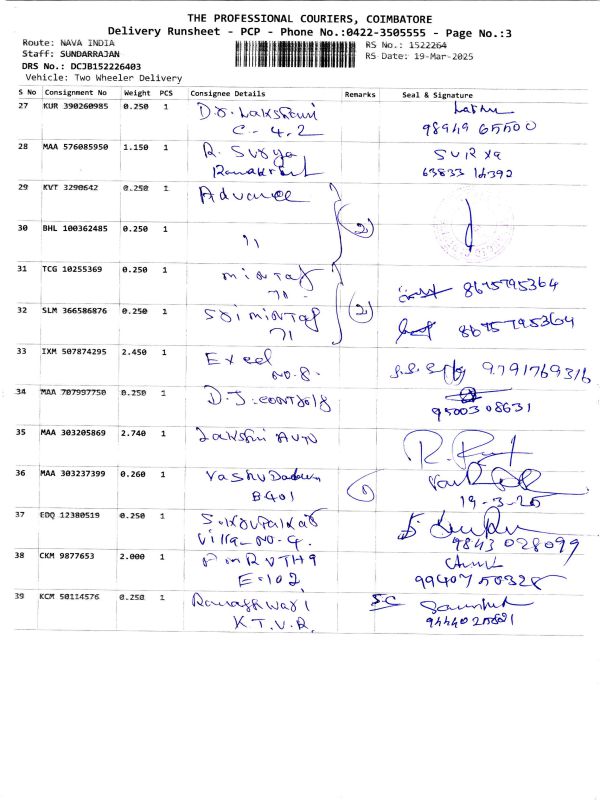 THE PROFESSIONAL COURIERS, COIMBATORE
Delivery Runsheet - PCP - Phone No.:0422-3505555 - Page No.:3
Route: NAVA INDIA
RS No.: 1522264
Staff: SUNDARRAJAN
RS Date: 19-Mar-2025
DRS No.: DCJB152226403
Vehicle: Two Wheeler Delivery
S No Consignment No Weight PCS Consignee Details Remarks Seal & Signature
27 KUR 390260985 0.250 1
C-4.2 98949 65500
28 MAA 576085950 1.150 1 R. Surya SURYA
63833 16392
29 KVT 3290642 0.250 1 Advance
30 BHL 100362485 0.250 1 11 2
31 TCG 10255369 0.250 1 mintaf
71. 8675795364
32 SLM 366586876 0.250 1 Sri mintaf 2
71 8675795364
33 IXM 507874295 2.450 1 Excel 9791769316
NO.8.
34 MAA 707997750 0.250 1 D.J. controls
9500308631
35 MAA 303205869 2.740 1 Lakshmi
36 MAA 303237399 0.260 1
B401 19-3-25
37 EDQ 12380519 0.250 1
Villa-NO-4. 9843028099
38 CKM 9877653 2.000 1
E-102 9940750328
39 KCM 50114576 0.250 1 S.C
K.T.V.R.